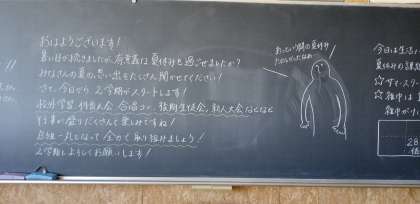 おはようございます！
暑い日が続きましたが、有意義な夏休みを過ごせましたか？
みなさんの夏の思い出をたくさん聞かせてください！
さて、今日から2学期がスタートします！
校外学習、体育大会、合唱コン、後期生徒会、新人大会などなど
行事が盛りだくさんで楽しみですね！
一丸となって全力で取り組みましょう！
2学期もよろしくお願いします！
あっという間の夏休み
たのしかったなぁ
今日は生活
夏休みの課題
☆サマースタ
☆
28